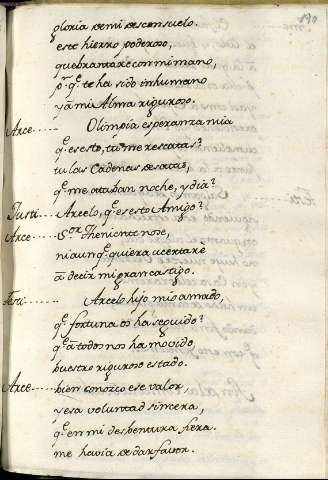 190
gloria de mi desconsuelo.
este hierro poderoso,
quebrantare con mi mano,
p.r q.e te ha sido inhumano
y à mi Alma riguroso.
Arce..... Olimpia esperanza mia
q.e es esto, tu me rescatas?
tu las Cadenas desatas,
q.e me ataban noche, y dia?
Justi..... Arcelo, q.e es esto Amigo?
Arce..... S.or Theniente no se,
ni aunq.e quiera acertarè
à decir mi gran castigo.
..... Arcelo hijo mio amado,
q.e fortuna os ha seguido?
q.e à todos nos ha movido,
buestro riguroso estado.
Arce..... bien conozco ese valor,
y esa voluntad sincera,
q.e en mi desbentura fiera.
me havia de dar favor.